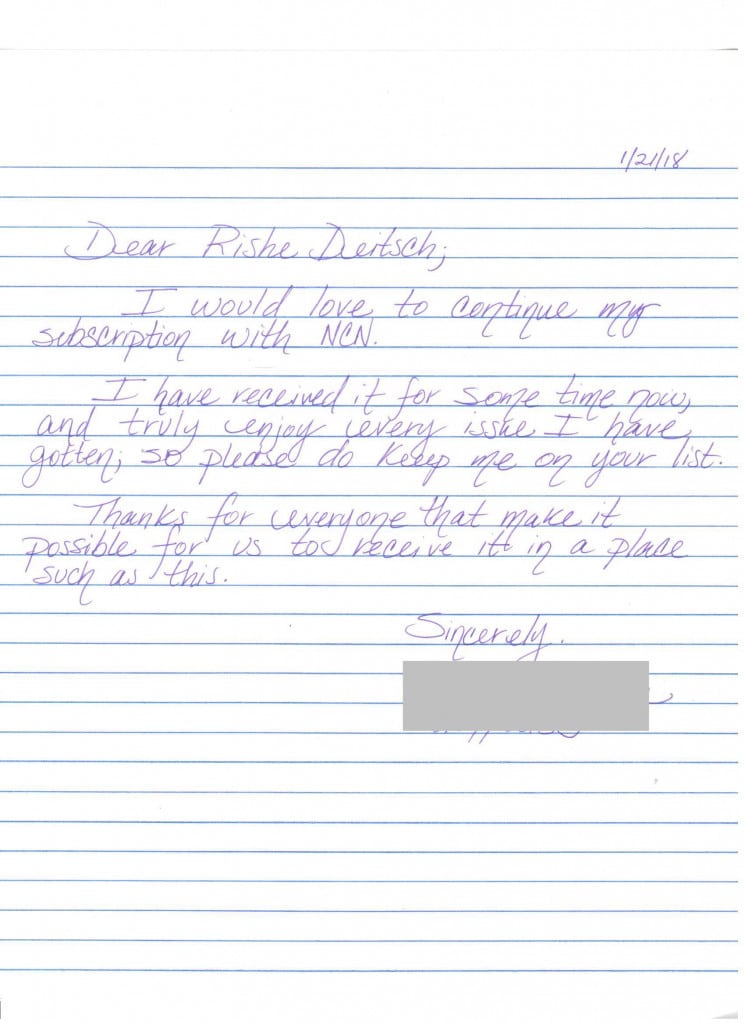 1/21/18
Dear Rishe Deitsch;
I would love to continue my
subscription with NCN.
I have received it for some time now,
and truly enjoy every issue I have
gotten; so please do keep me on your list.
Thanks for everyone that make it
possible for us to receive it in a place
such as this.
Sincerely.